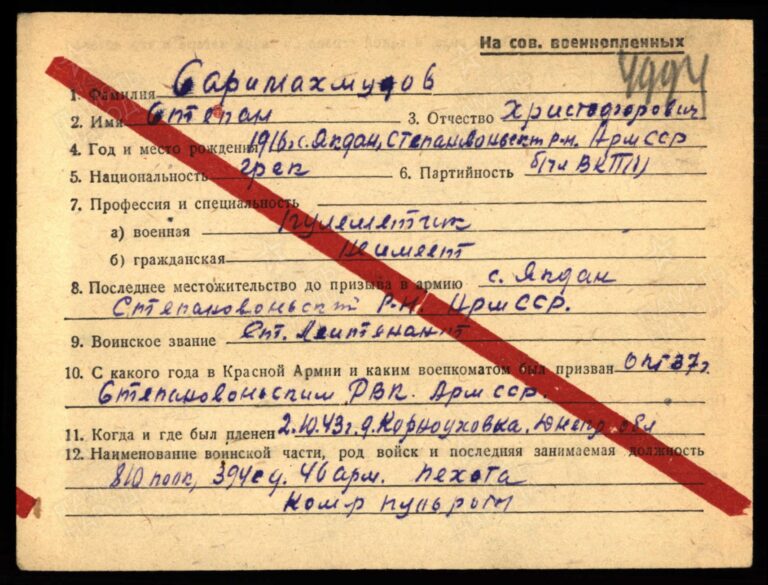 На сов. военнопленных
4994
1. Фамилия Саримахмудов
2. Имя Степан 3. Отчество Христофорович
4. Год и место рождения 1916 г. с. Якдан, Степановоньскт р-н. Арм ССР
5. Национальность грек 6. Партийность б/чл ВКП(б)
7. Профессия и специальность
а) военная пулеметчик
б) гражданская не имеет
8. Последнее местожительство до призыва в армию с. Якдан
Степановоньскит Р-н. Арм ССР.
9. Воинское звание Ст. Лейтенант
10. С какого года в Красной Армии и каким военкоматом был призван Окт 37 г.
Степановоньским РВК. Арм сср.
11. Когда и где был пленен 2.10.43 г. д. Корноуховка. Днепр. обл
12. Наименование воинской части, род войск и последняя занимаемая должность
810 полк, 394 сд. 46 арм. пехота
Ком-р пульроты